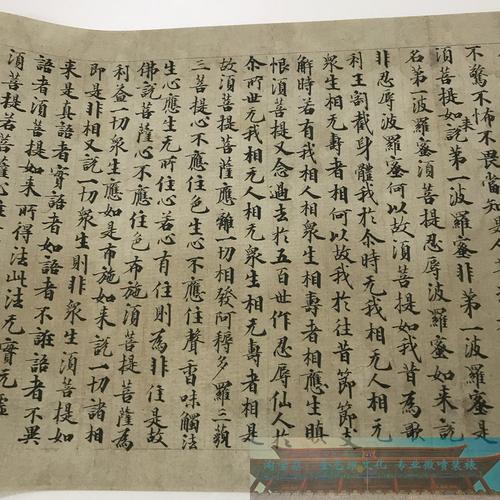 不驚不怖不畏當知是
須菩提如來說第一波羅蜜非第一波羅蜜是
名第一波羅蜜須菩提忍辱波羅蜜如來說
非忍辱波羅蜜何以故須菩提如我昔為歌
利王割截身體我於尒時无我相无人相无
衆生相无壽者相何以故我於往昔節節支
解時若有我相人相衆生相壽者相應生瞋
恨須菩提又念過去於五百世作忍辱仙人於
尒所世无我相无人相无衆生相无壽者相是
故須菩提菩薩應離一切相發阿耨多羅三藐
三菩提心不應住色生心不應住聲香味觸法
生心應生无所住心若心有住則為非住是故
佛說菩薩心不應住色布施須菩提菩薩為
利益一切衆生應如是布施如來說一切諸相
即是非相又說一切衆生則非衆生須菩提如
來是真語者實語者如語者不誑語者不異
語者須菩提如來所得法此法无實无虛
須菩提若菩薩心住
专业微喷装裱